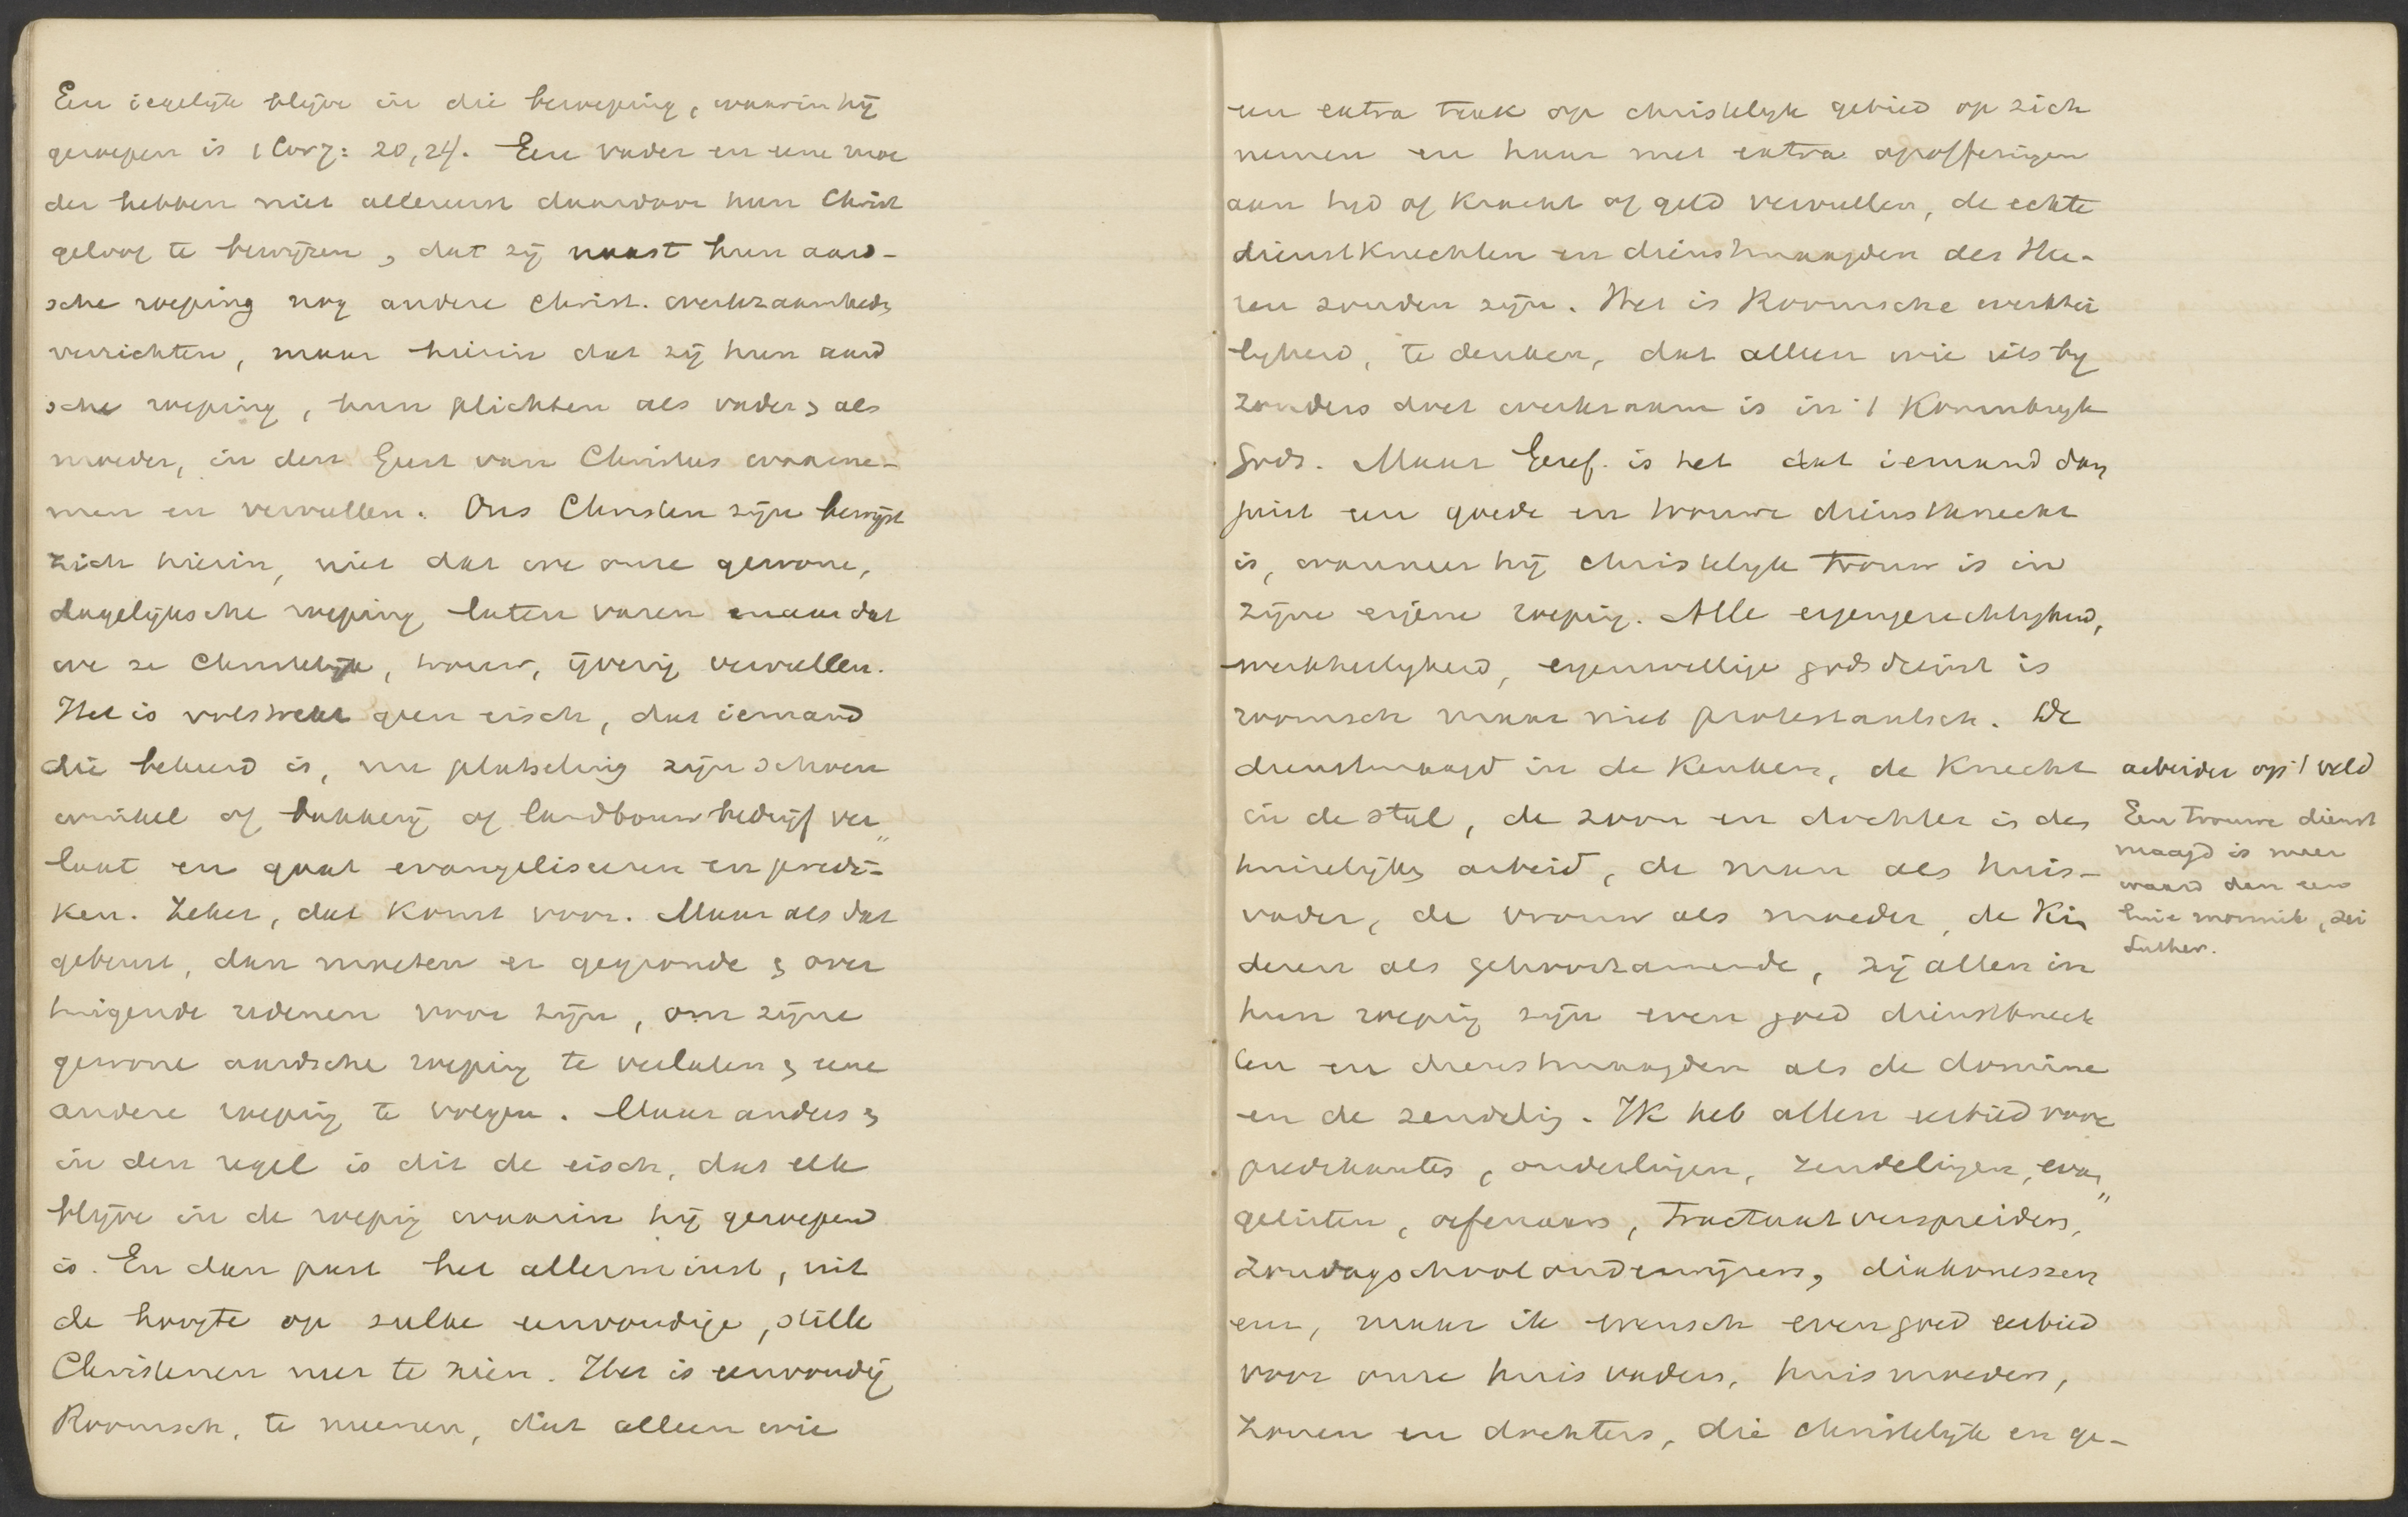 Een iegelijk blijve in die beroeping, waarin hij
geroepen is 1 Cor 7: 20, 24. Een vader en eene moe
der hebben niet allereerst daardoor hun Christ
geloof te bewijzen, dat zij naast hun aard-
sche roeping nog andere Christ. werkzaamhedn
verrichten, maar hierin dat zij hun aard
sche roeping, hun plichten als vader, als
moeder, in den Geest van Christus waarne-
men en vervullen. Ons Christen zijn bewijst
zich hierin, niet dat we onze gewone,
dagelijksche roeping laten varen maar dat
we ze Christelijk, trouw, ijverig vervullen.
Het is volstrekt geen eisch, dat iemand
die bekeerd is, nu plotseling zijn schoen
winkel of bakkerij of landbouwbedrijf ver„
laat en gaat evangeliseeren en predi-
ken. Zeker, dat komt voor. Maar als dat
gebeurt, dan moeten er gegronde & over
tuigende redenen voor zijn, om zijne
gewone aardsche roeping te verlaten & eene
andere roeping te volgen. Maar anders &
in den regel is dit de eisch, dat elk
blijve in de roeping waarin hij geroepend
is. En dan past het allerminst, uit
de hoogte op zulke eenvoudige, stille
Christenen neer te zien. Het is eenvoudig
Roomsch, te meenen, dat alleen wie
een extra taak op christelijk gebied op zich
nemen en haar met extra opofferingen
aan tijd of kracht of geld vervullen, de echte
dienstknechten en dienstmaagden des Hee-
ren zouden zijn. Het is Roomsche werkhei
ligheid, te denken, dat alleen wie iets bij
zonders doet werkzaam is in 't Koninkrijk
Gods. Maar Geref. is het dat iemand dan
juist een goede en trouwe dienstknecht
is, wanneer hij christelijk trouw is in
zijne eigene roeping. Alle eigengerechtigheid,
werkheiligheid, eigenwillige godsdienst is
roomsch maar niet protestantsch. De
dienstmaagd in de keuken, de knecht
in de stal, de zoon en dochter in den
huiselijken arbeid, de man als huis-
vader, de vrouw als moeder, de kin
deren als gehoorzamende, zij allen in
hun roeping zijn even goed dienstknech
ten en dienstmaagden als de domine
en de zendeling. Ik heb allen eerbied voor
predikanten, ouderlingen, zendelingen, evan„
gelisten, oefenaars, tractaatverspreiders,
Zondagschoolonderwijzers, diakonessen
enz, maar ik wensch evengoed eerbied
voor onze huisvaders, huismoeders,
zonen en dochters, die christelijk en ge-
arbeider op 't veld
Een trouwe dienst
maagd is meer
waard dan een
luie monnik, zei
Luther.